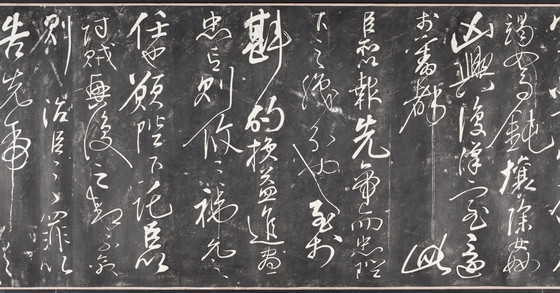 竭駑鈍攘除姦
凶興復漢室還
於舊都此
臣所以報先帝而忠陛
下之職分也至於
斟酌損益進盡
忠言則攸之禕允之
任也願陛下託臣以
討賊興復之效不效
則治臣之罪以
告先帝